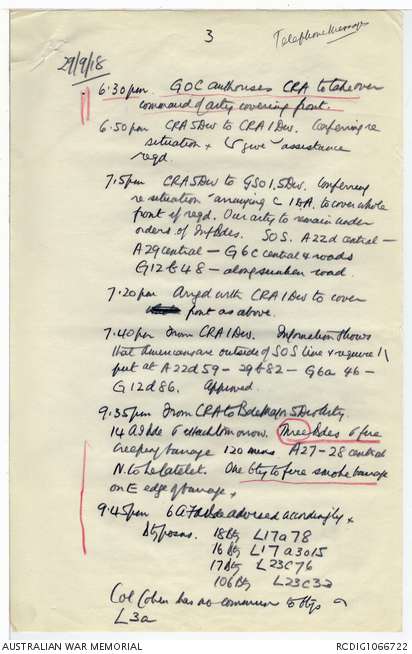 3
Telephone Messages
29/9/18
6.30pm GOC authorises CRA to take over
command of arty covering front.
6.50pm CRA 5Div to CRA 1Div. Conferring re
situation & to give assistance
reqd.
7.5pm CRA 5Div to GSO1. 5Div. Conferring
re situation arranging 1DA. to cover whole
front if reqd. Our arty to remain under
orders of Inf Bdes. SOS. A22d central —
A29central — G6C central & roads
G12b48 — along sunken road.
7.20pm Arrgd with CRA 1Div to cover
front as above.
7.40pm From CRA 1Div. Information shows
that Americans are outside of SOS line & require it
put at A22d59 - 29b82 - G6a 46 -
G12d86. Approved.
9.35pm From CRA to Bde Major 5Div Arty.
14 AFA Bde to attack tomorrow. Three Bdes to fire
creeping barrage 120 mins A27-28 central
N. to Le Catelet. One bty to fire smoke barrage
on E edge of barrage
9.45pm 6 AFA Bde advised accordingly
Bty posns. 18 Bty L17a78
16 Bty L17a3015
17 Bty L23C76
106 Bty L23C32
Col Cohen has no commn to btys
L3a
AUSTRALIAN WAR MEMORIAL
RCDIG1066722